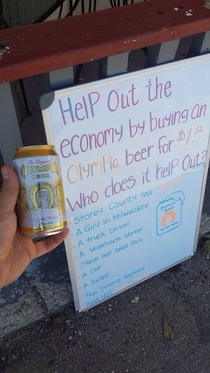 HelP Out the
economy by buying an
Olympia beer for $1.50
Who does it help Out?
Storey County
A Guy in Milwaukee
A truck Driver
A Warehouse Worker
Steve our Sales Guy
A Cop
A Judge